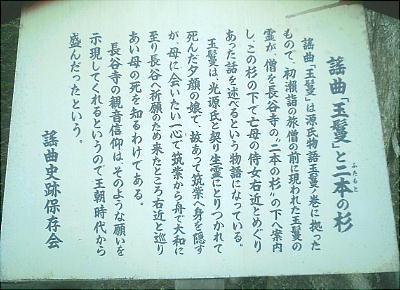 謡曲「玉鬘」と二本の杉
ふたもと
謡曲「玉鬘」は源氏物語玉鬘ノ巻に拠った
もので、初瀬詣の旅僧の前に現われた玉鬘の
霊が、僧を長谷寺の〝二本の杉〟の下へ案内
し、この杉の下で亡母の侍女右近とめぐり
あった話を述べるという物語になっている。
玉鬘は、光源氏と契り生霊にとりつかれて
死んだ夕顔の娘で、故あって筑紫へ身を隠す
が、母に会いたい一心で筑紫から舟で大和に
至り長谷へ祈願のため来たところ右近と巡り
あい母の死を知るわけである。
長谷寺の観音信仰は、そのような願いを
示現してくれるというので王朝時代から
盛んだったという。
謡曲史跡保存会